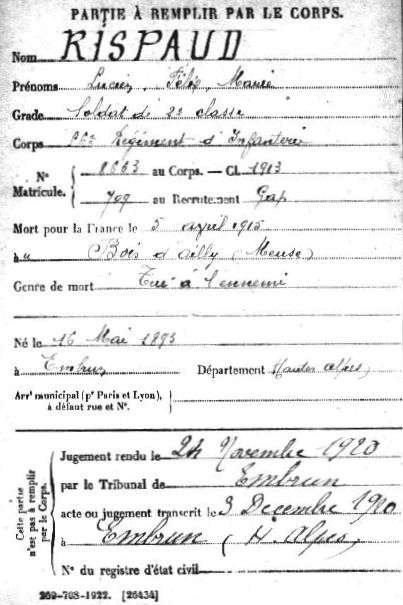 PARTIE À REMPLIR PAR LE CORPS.
Nom RISPAUD
Prénoms Lucien, Félix, Marie
Grade Soldat de 2e classe
Corps Régiment d'Infanterie
Nº Matricule. { 8863 au Corps. — Cl. 1913
709 au Recrutement Gap
Mort pour la France le 5 avril 1915
à Bois d'ailly (Meuse)
Genre de mort Tué à l'ennemi
Né le 16 Mai 1893
à Embrun Département Hautes Alpes
Arrt municipal (pr Paris et Lyon),
à défaut rue et Nº.
Cette partie n'est pas à remplir par le Corps.
Jugement rendu le 24 Novembre 1920
par le Tribunal de Embrun
acte ou jugement transcrit le 3 Décembre 1920
à Embrun (H. Alpes)
Nº du registre d'état civil
269-708-1922. [26434]